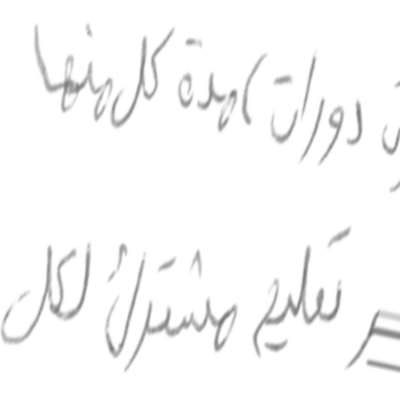 دورات، مدة كل منها
تعليم مشترك لكل